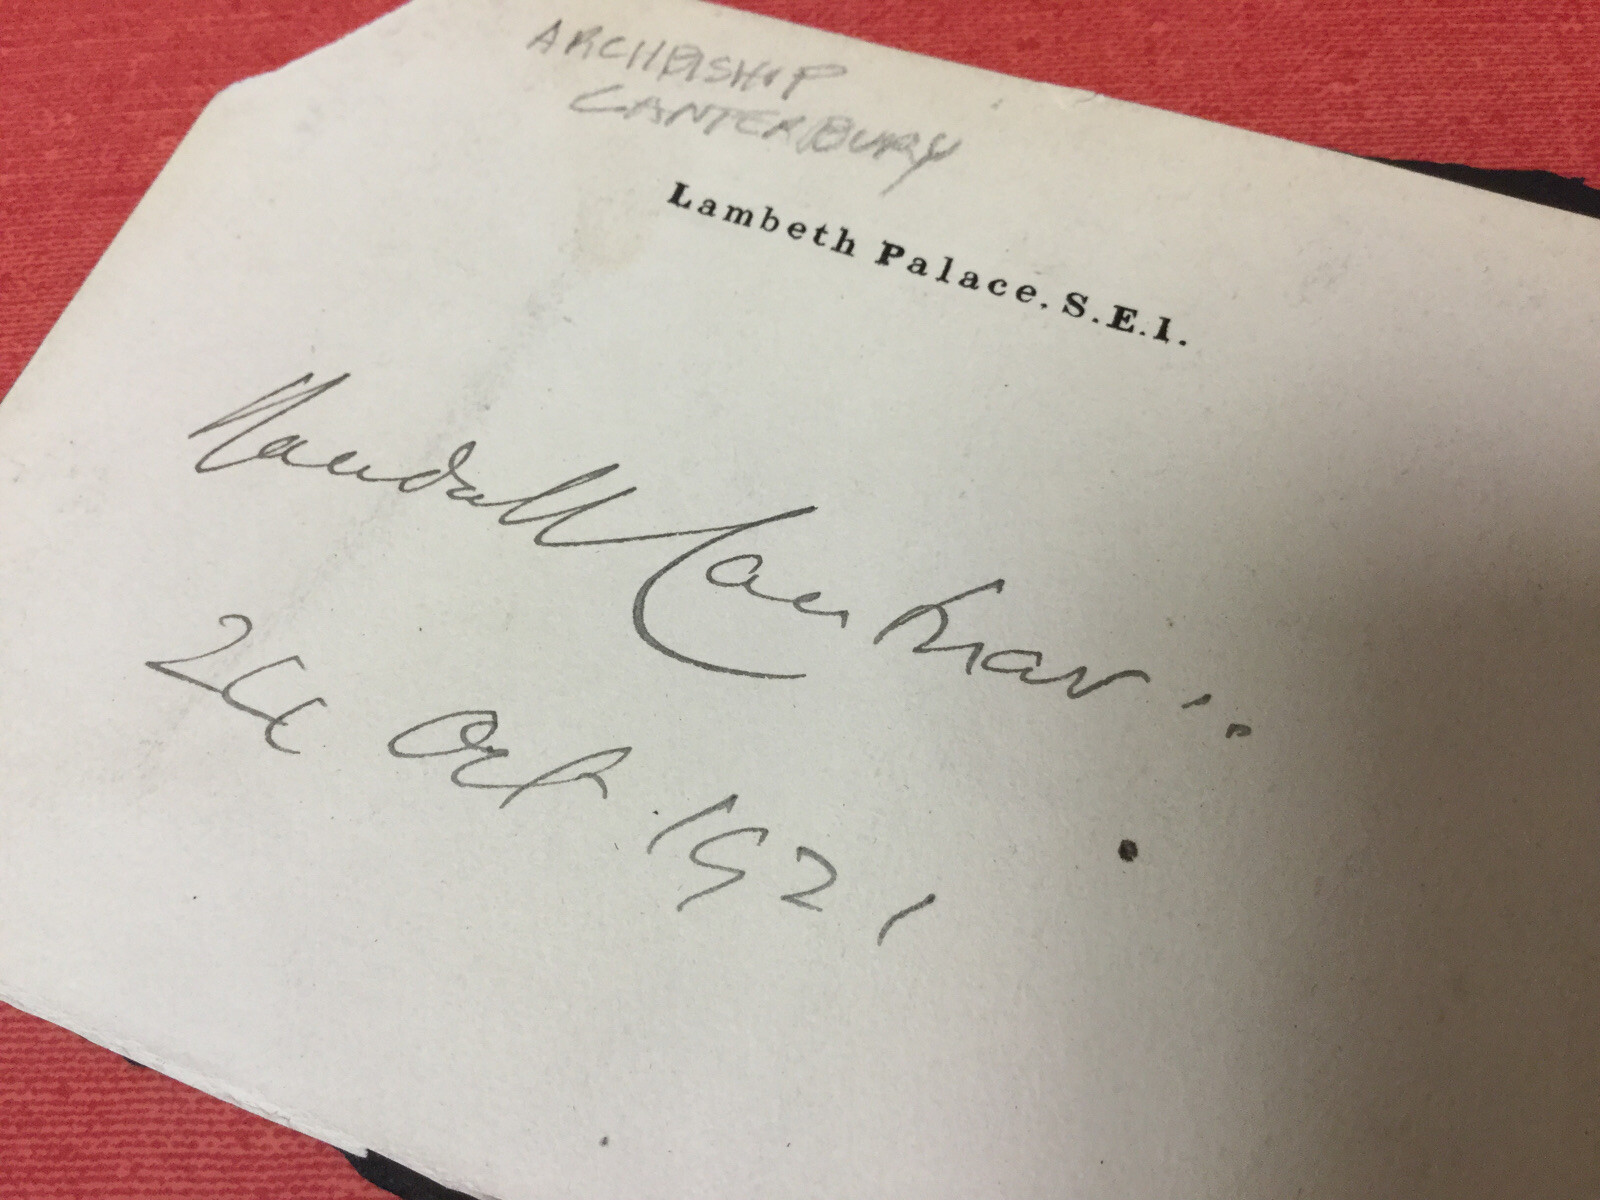 ARCHBISHOP
CANTERBURY
Lambeth Palace. S.E.1.
Randall Cantuar:
Oct. 1921